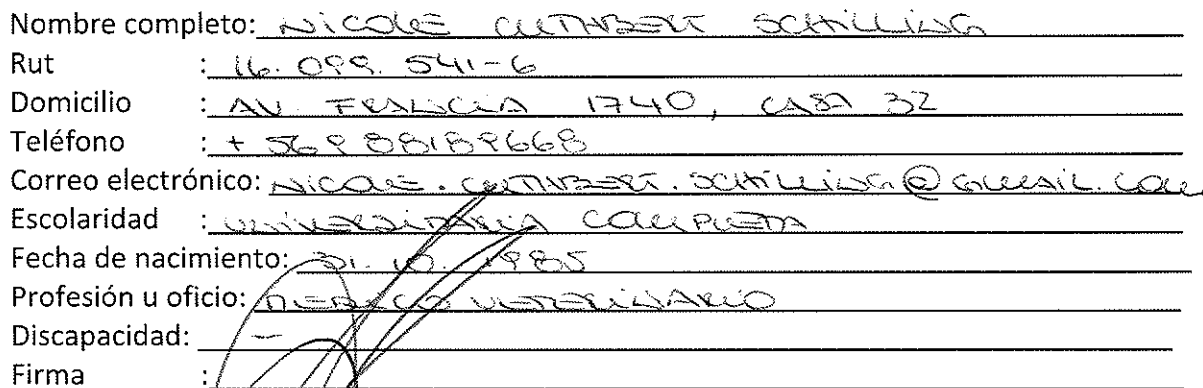 Nombre completo: NICOLE CUTHBERT SCHILLING
Rut : 16.099.541-6
Domicilio : AV. FRANCIA 1740, CASA 32
Teléfono : +569 88189668
Correo electrónico: NICOLE.CUTHBERT.SCHILLING@GMAIL.COM
Escolaridad : UNIVERSITARIA COMPLETA
Fecha de nacimiento: 31.10.1985
Profesión u oficio: MEDICO VETERINARIO
Discapacidad: —
Firma :